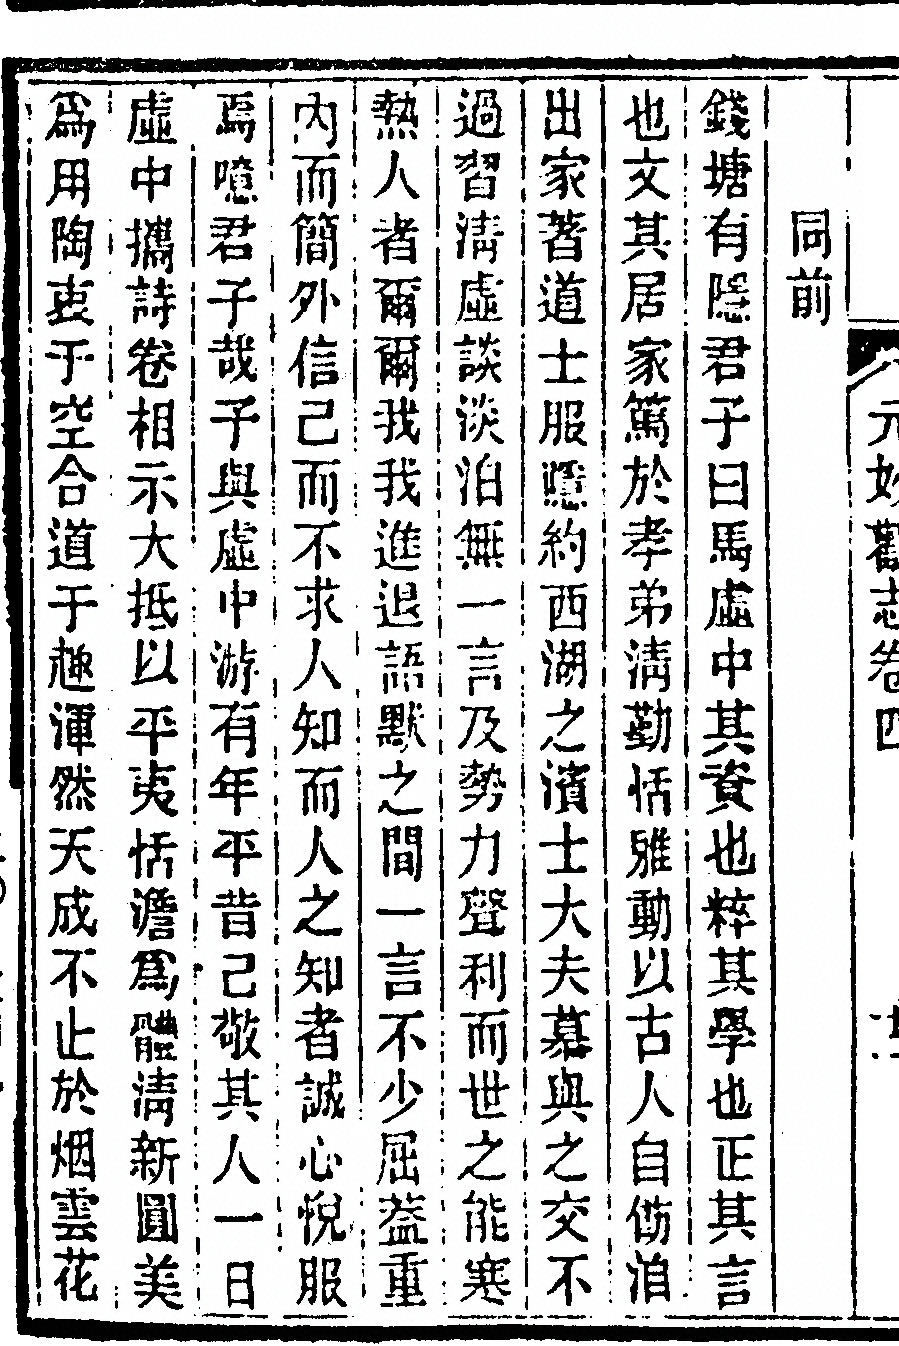 元妙觀志卷四
同前
錢塘有隱君子曰馬虛中其資也粹其學也正其言
也文其居家篤於孝弟淸勤恬雅動以古人自傍洎
出家著道士服隱約西湖之濱士大夫慕與之交不
過習淸虛談淡泊無一言及勢力聲利而世之能寒
熱人者爾爾我我進退語默之間一言不少屈葢重
內而簡外信己而不求人知而人之知者誠心悅服
焉噫君子哉子與虛中游有年平昔已敬其人一日
虛中攜詩卷相示大抵以平夷恬澹爲體淸新圓美
爲用陶衷于空合道于趣渾然天成不止於烟雲花